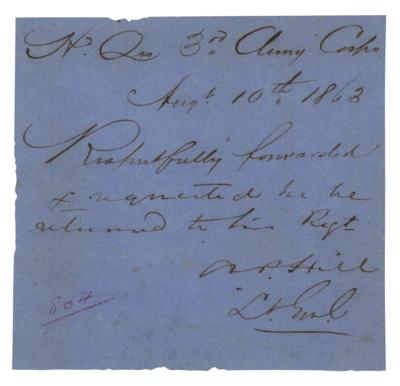 Hd. Qrs 3rd Army Corps
Augt. 10th 1863
Respectfully forwarded
& requested he be
returned to his Regt
A. P. Hill
Lt. Genl
864